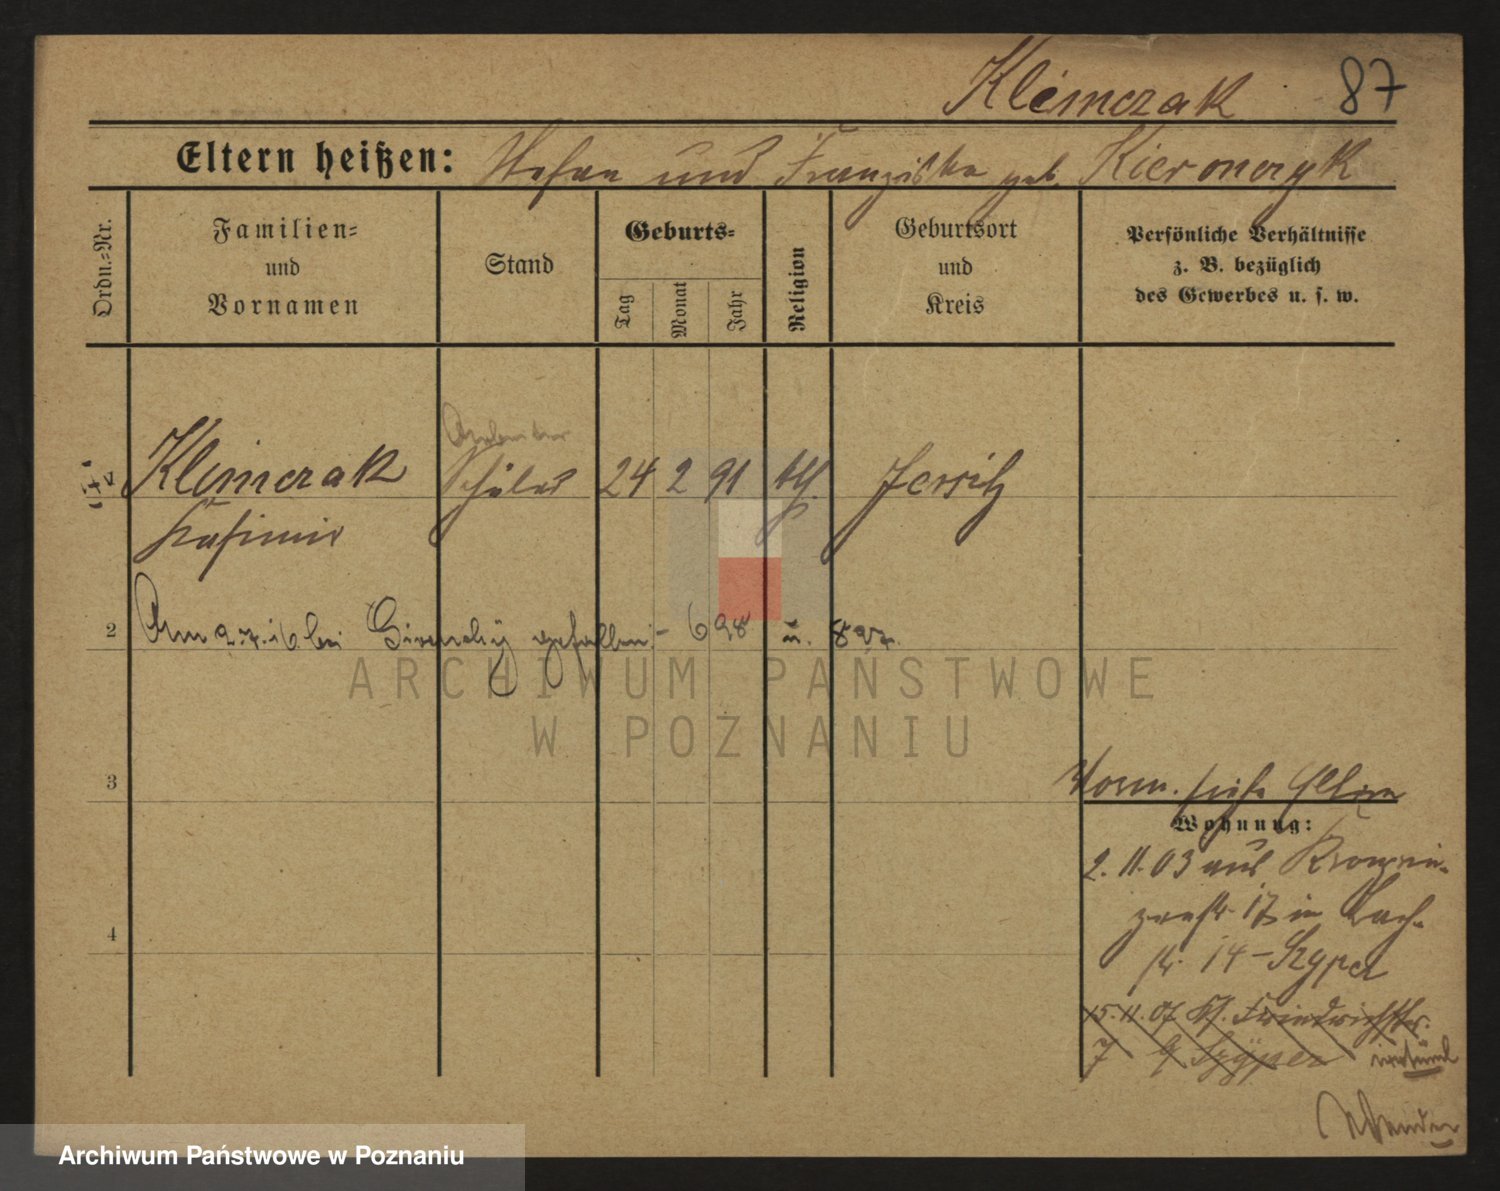 Klemczak 87
Eltern heißen: Stefan und Franziska geb. Kieronczyk
Ordn.-Nr.
Familien-
und
Vornamen
Stand
Geburts-
Tag
Monat
Jahr
Religion
Geburtsort
und
Kreis
Persönliche Verhältnisse
z. B. bezüglich
des Gewerbes u. s. w.
Arbeiter
Klemczak Schüler 24 2 91 kth. Jersitz
Kasimir
2 Am 27.7.16 bei Givenchy gefallen - 698 u. 897.
ARCHIWUM PAŃSTWOWE
W POZNANIU
3
Vorm. siehe Eltern
Wohnung:
2. 11. 03 aus Kronprin-
zenstr. 17 in Bach-
4
str. 14 - Szyper
15. 11. 07 Kl. Friedrichstr.
7 Szyper irrtüml
Archiwum Państwowe w Poznaniu